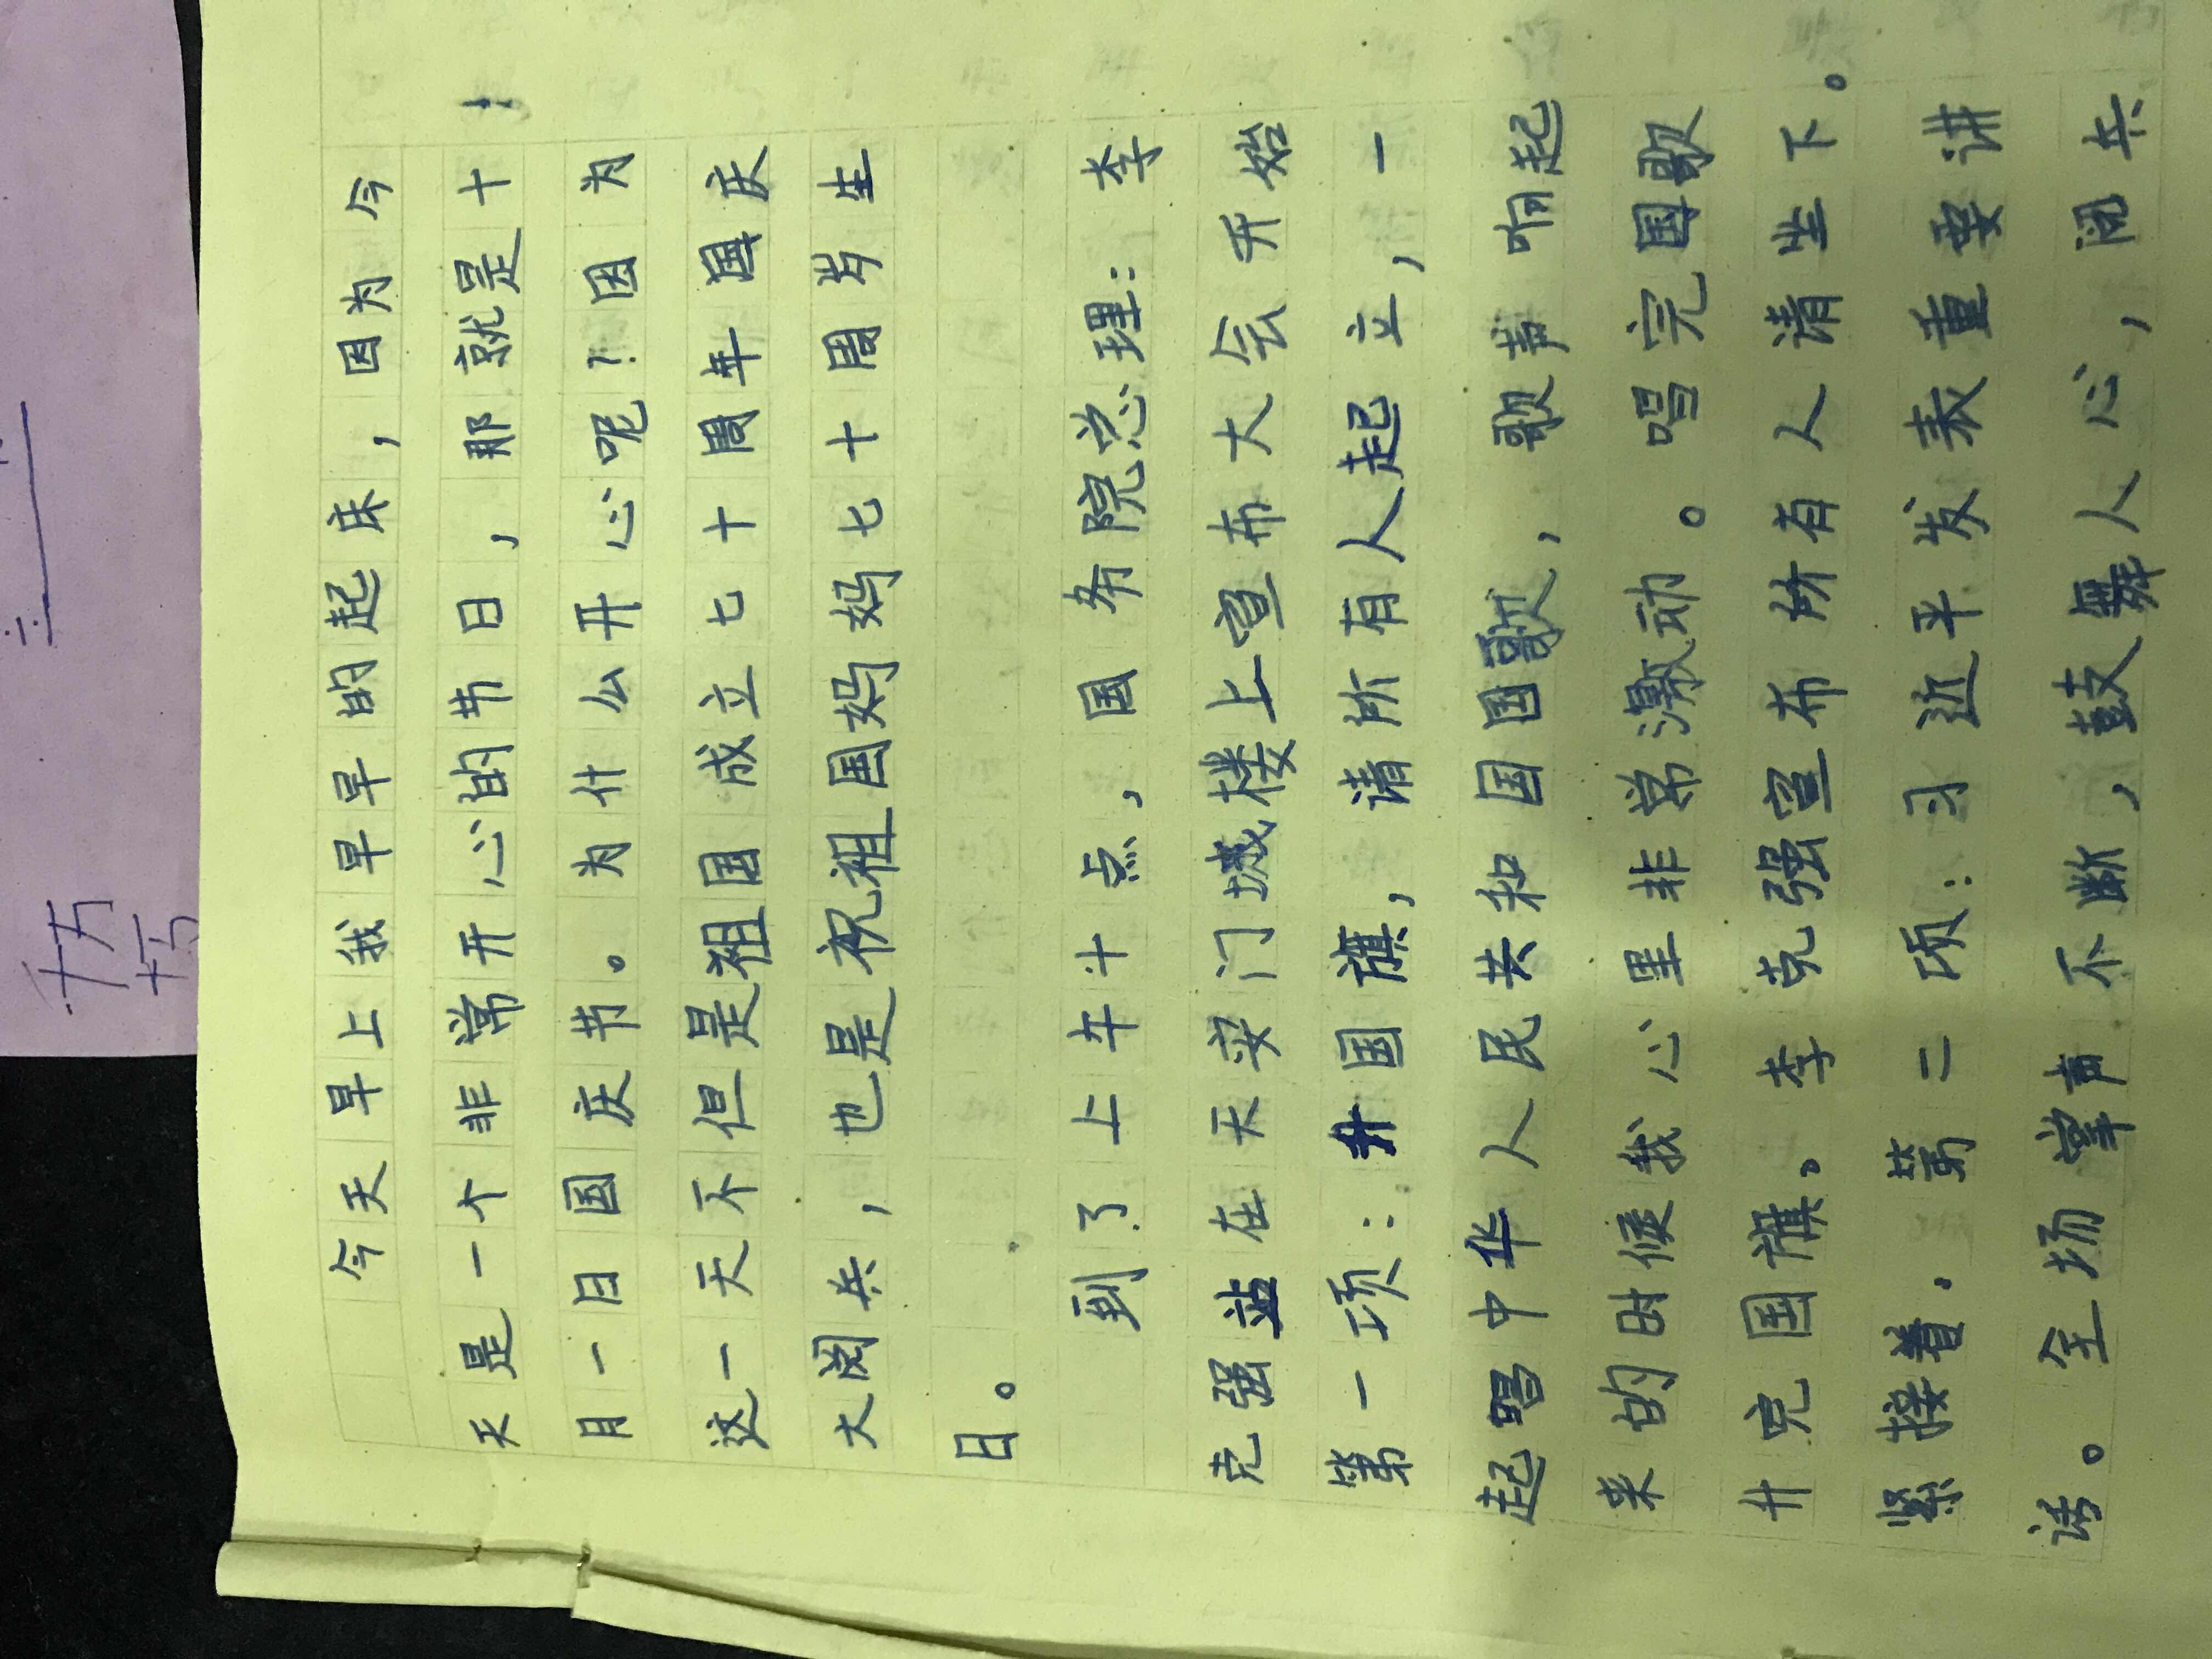 今天早上我早早早的起床，因为今
天是一个非常开心的节日，那就是十
月一日国庆节。为什么开心呢？因为
这一天不但是祖国成立七十周年国庆
大阅兵，也是祝祖国妈妈七十周岁生
日。
到了上午十点，国务院总理：李
克强站在天安门城楼上宣布大会开始！
第一项：升国旗，请所有人起立，一
起唱中华人民共和国国歌，歌声响起
来的时候我心里非常激动。唱完国歌
升完国旗。李克强宣布所有人请坐下。
紧接着，第二项：习近平发表重要讲
话。全场掌声不断，鼓舞人心，阅兵